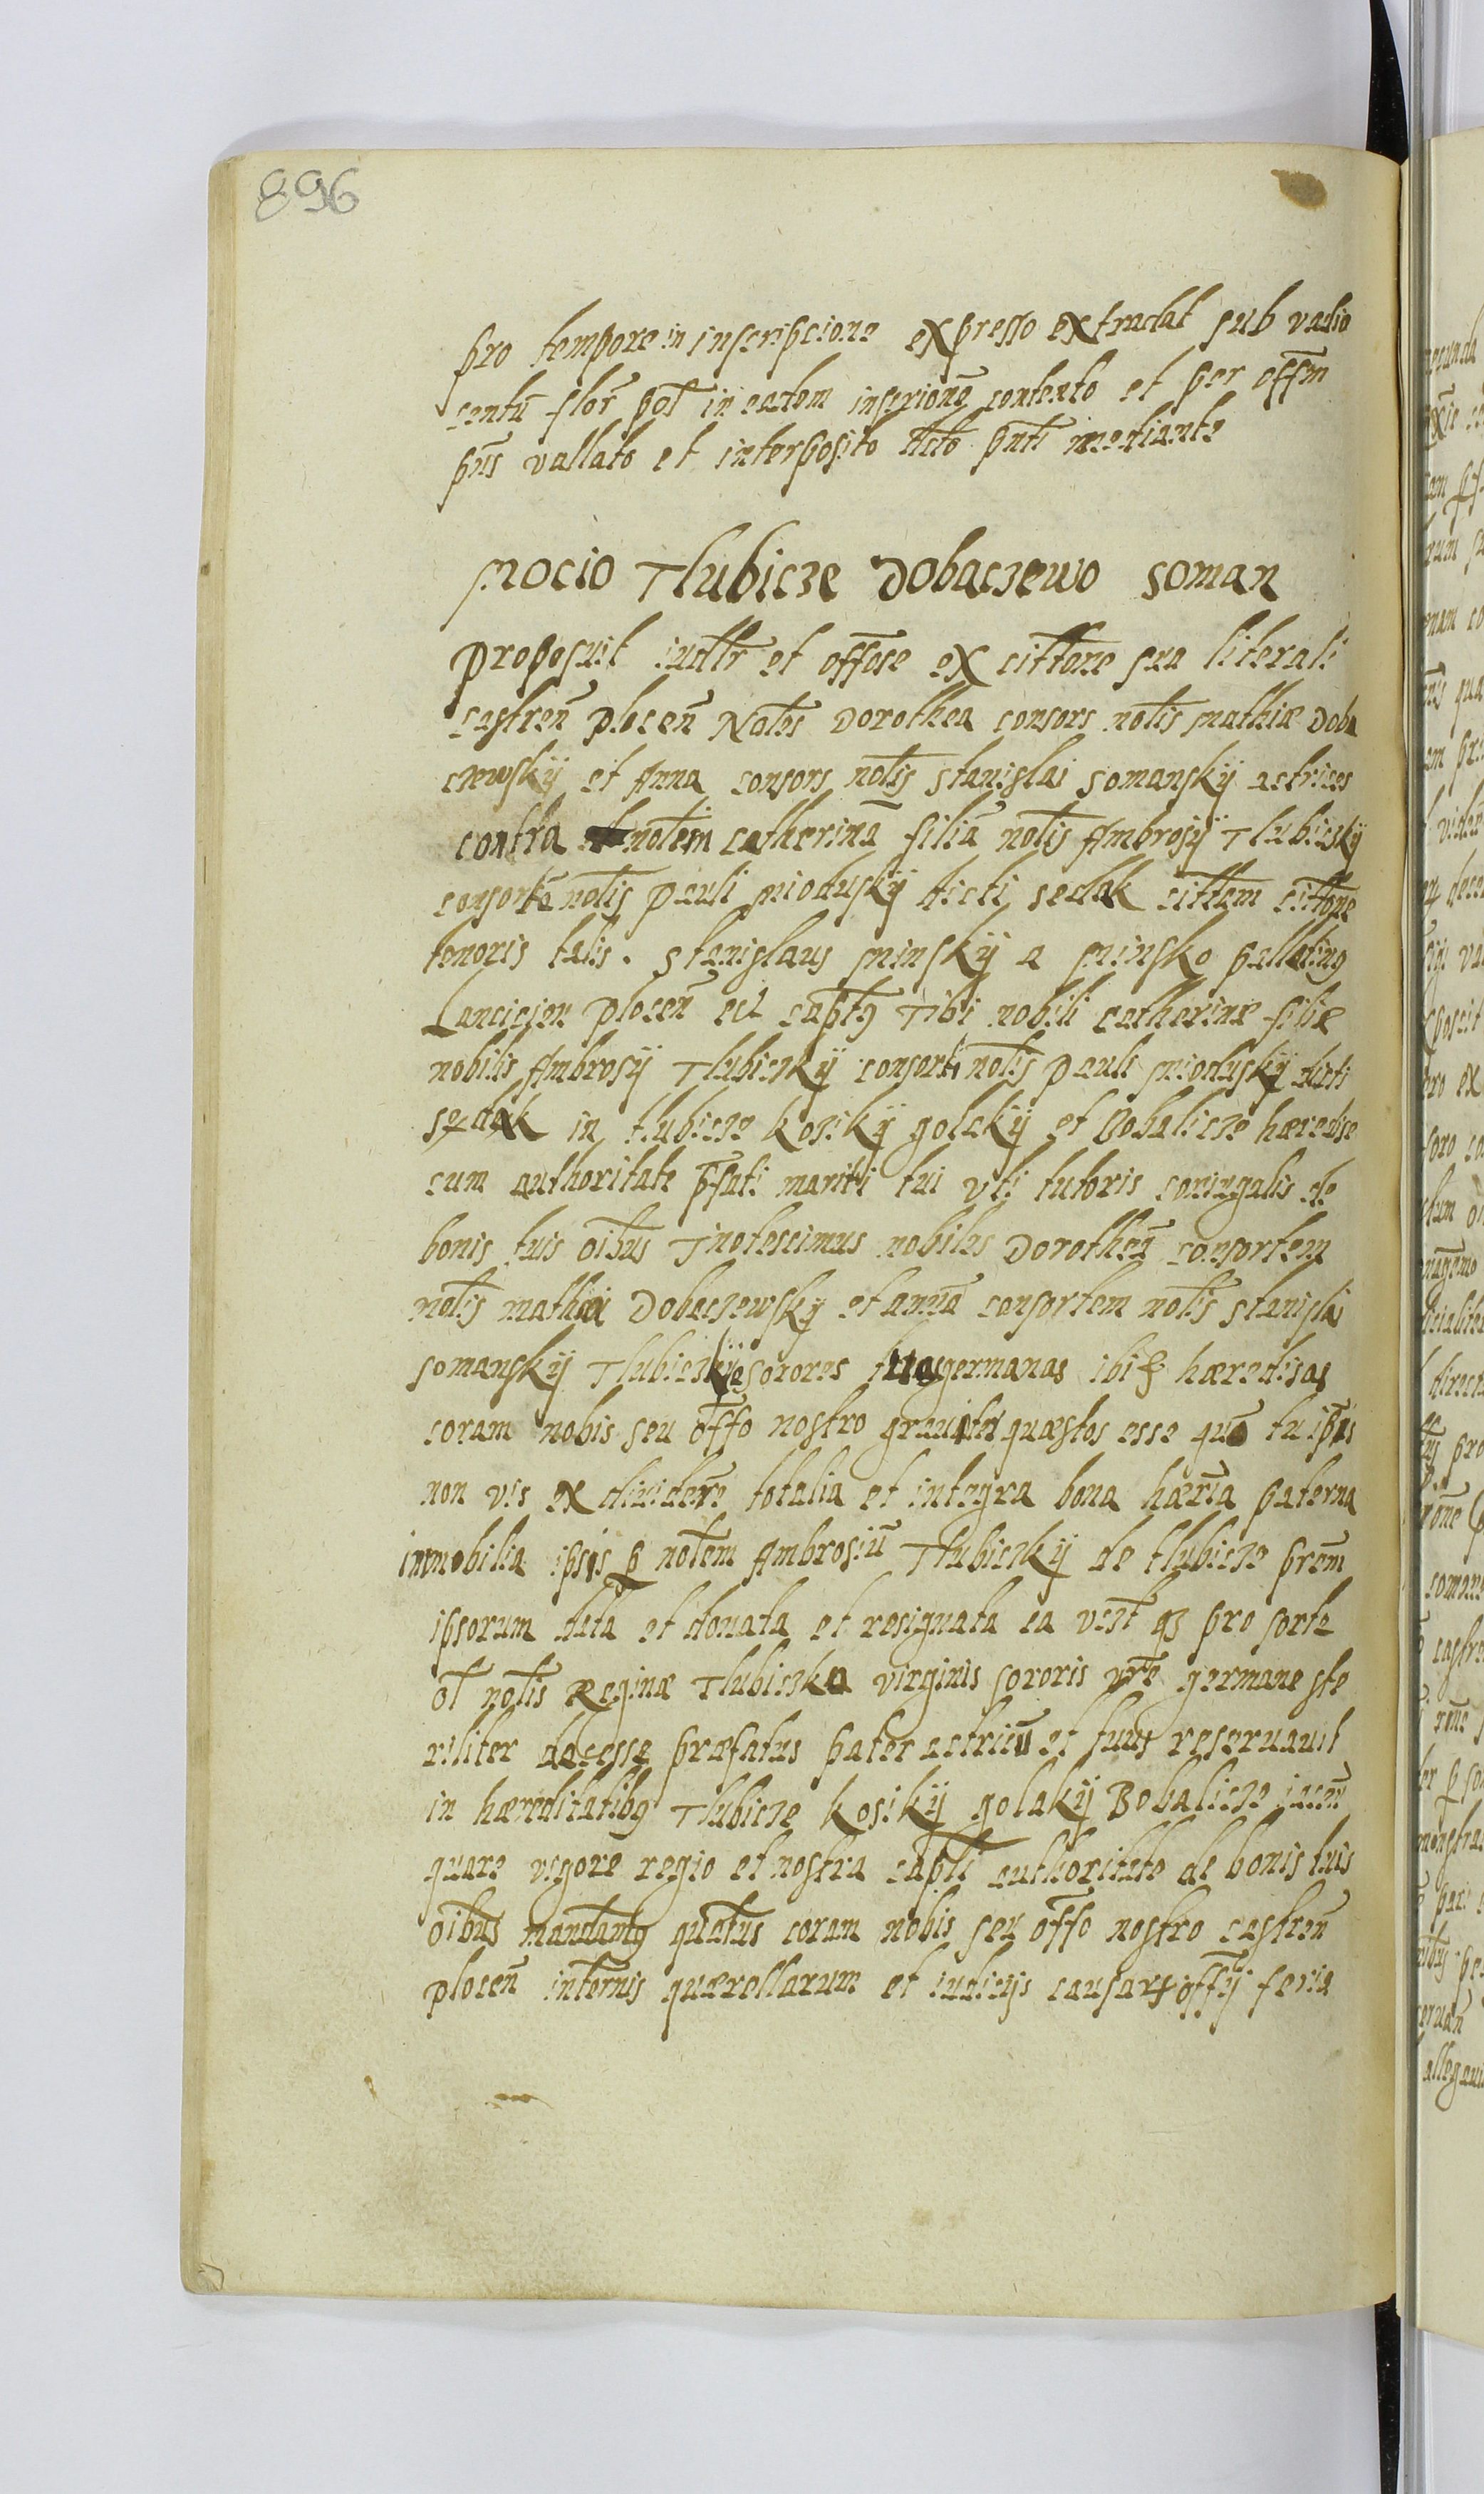 896
pro tempore in inscripcione expresso extradat sub vadio
centũ flor̃ pol̃ in eadem inscrionẽ contento et per offm̃
pñs vallato et interposito dicto pñti mediante
Miocio Tlubicze Dobaczewo Soman
Proposuit iudlr̃ et offose ex cittõne sua literali
castreñ ploceñ Nobles Dorothea consors nobĩs Mathiæ Doba
czewskÿ et Anna consors nobĩs Stanislai Somanskÿ actrices
contra nobĩem Catherinã filiã nobĩs Ambrosÿ Tlubiczkÿ
consortẽ nobĩs Pauli Mioduskÿ dicti Sedlak cittam cittõne
tenoris talis. Stanislaus Minskÿ a Minsko pallatinꝯ
Lancicien ploceñ ect captꝯ Tibi nobili Catherinæ filiæ
nobilis Ambrosÿ Tlubiczkÿ consorti nobĩs Pauli Mioduskÿ dicti
Sedlak in Tlubicze Kosikÿ golakÿ et Bobalicze hæredisse
cum authoritate p̃fati mariti tui vti tutoris coniugalis de
bonis tuis oĩbus Inotescimus nobiles Dorotheã consortem
nobĩs Mathiæ Dobaczewskÿ et annã consortem nobĩs Stanislai
Somanskÿ Tlubiczkie sorores tuas germanas ibiꝫ hæredisas
coram nobis seu offo nostro grauiter quæstos esse quõ tu ipsis
non vis ex diuidere totalia et integra bona hæria paterna
immobilia ipsis ꝑ nobĩem Ambrosiũ Tlubiczkÿ de Tlubicze prẽm
ipsorum data et donata et resignata ea vczt qꝫ pro sorte
ol̃ nobĩs Reginæ Tlubiczka virginis sororis vrẽ germane ste
riliter decesse præfatus pater actricũ et tuus reseruauit
in hæreditatibꝯ Tlubicze Kosikÿ golakÿ Bobalicze iaceñ
quare vigore regio et nostra captl̃i authoritate de bonis tuis
oĩbus mandamꝯ quatus coram nobis seu offo nostro castreñ
ploceñ in termis quærellarum et iudicÿs causarꝝ offÿ feria